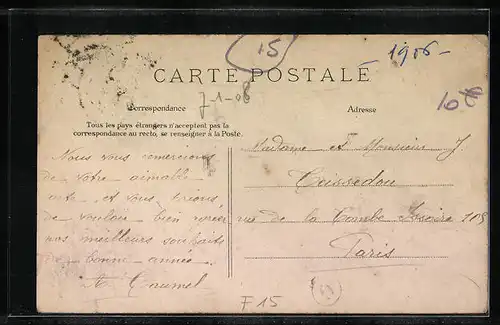 15
1906-
CARTE POSTALE
7-1-08
10
Correspondance
Adresse
Tous les pays étrangers n'acceptent pas la
correspondance au recto, se renseigner à la Poste.
Madame et Monsieur J
Nous vous remercions
de votre aimable
carte et vous prions
rue de la Tombe Issoire 105
de vouloir bien
nos meilleurs souhaits
Paris
de bonne année
F 15